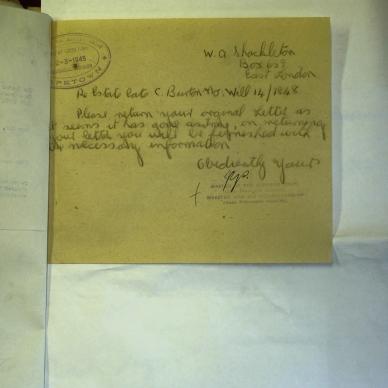 2-3-1945
PETOWN
W. A. Shackleton
Box 659
East London
Re Estate Late C. Burton No. Will 14/1848
Please return your original letter as
it seems it has gone astray, on returning
your letter you will be furnished with
necessary information
Obediently Yours